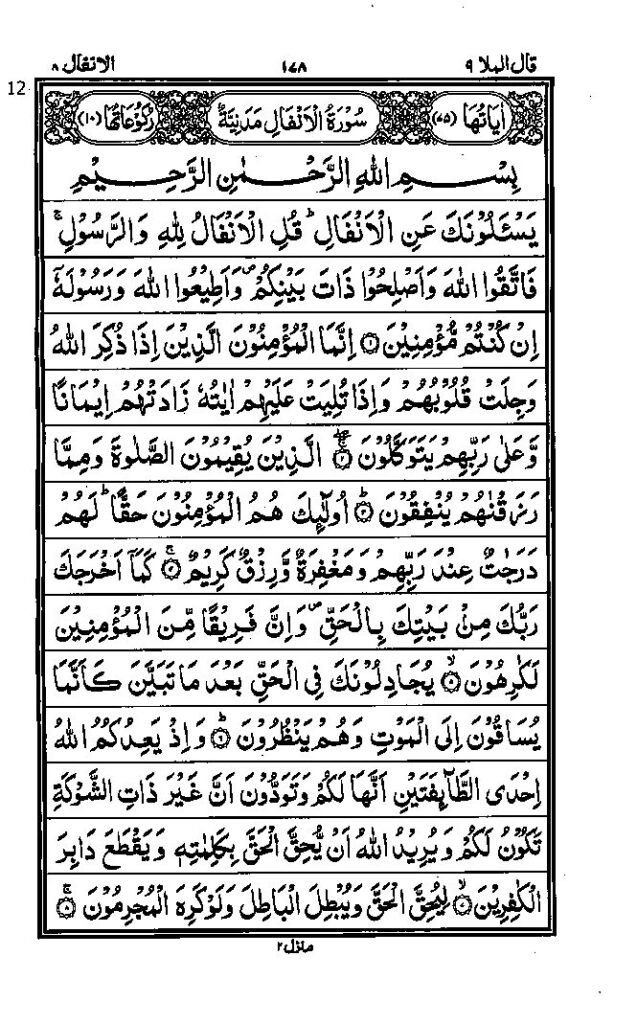 قال الملا ٩ ١٧٨ الانفال ٨
12
اٰيَاتُهَا (٧٥) سُوْرَةُ الْاَنْفَالِ مَدَنِيَّةٌ رُكُوْعَاتُهَا (١٠)
بِسْمِ اللهِ الرَّحْمٰنِ الرَّحِيْمِ
يَسْـَٔلُوْنَكَ عَنِ الْاَنْفَالِ ؕ قُلِ الْاَنْفَالُ لِلّٰهِ وَالرَّسُوْلِ ۚ
فَاتَّقُوا اللهَ وَاَصْلِحُوْا ذَاتَ بَيْنِكُمْ ۪ وَاَطِيْعُوا اللهَ وَرَسُوْلَهٗۤ
اِنْ كُنْتُمْ مُّؤْمِنِيْنَ ۝١ اِنَّمَا الْمُؤْمِنُوْنَ الَّذِيْنَ اِذَا ذُكِرَ اللهُ
وَجِلَتْ قُلُوْبُهُمْ وَاِذَا تُلِيَتْ عَلَيْهِمْ اٰيٰتُهٗ زَادَتْهُمْ اِيْمَانًا
وَّعَلٰى رَبِّهِمْ يَتَوَكَّلُوْنَ ۝٢ الَّذِيْنَ يُقِيْمُوْنَ الصَّلٰوةَ وَمِمَّا
رَزَقْنٰهُمْ يُنْفِقُوْنَ ۝٣ؕ اُولٰٓئِكَ هُمُ الْمُؤْمِنُوْنَ حَقًّا ؕ لَهُمْ
دَرَجٰتٌ عِنْدَ رَبِّهِمْ وَمَغْفِرَةٌ وَّرِزْقٌ كَرِيْمٌ ۝٤ۚ كَمَاۤ اَخْرَجَكَ
رَبُّكَ مِنْۢ بَيْتِكَ بِالْحَقِّ ۪ وَاِنَّ فَرِيْقًا مِّنَ الْمُؤْمِنِيْنَ
لَكٰرِهُوْنَ ۝٥ۙ يُجَادِلُوْنَكَ فِى الْحَقِّ بَعْدَ مَا تَبَيَّنَ كَاَنَّمَا
يُسَاقُوْنَ اِلَى الْمَوْتِ وَهُمْ يَنْظُرُوْنَ ۝٦ؕ وَاِذْ يَعِدُكُمُ اللهُ
اِحْدَى الطَّآئِفَتَيْنِ اَنَّهَا لَكُمْ وَتَوَدُّوْنَ اَنَّ غَيْرَ ذَاتِ الشَّوْكَةِ
تَكُوْنُ لَكُمْ وَيُرِيْدُ اللهُ اَنْ يُّحِقَّ الْحَقَّ بِكَلِمٰتِهٖ وَيَقْطَعَ دَابِرَ
الْكٰفِرِيْنَ ۝٧ۙ لِيُحِقَّ الْحَقَّ وَيُبْطِلَ الْبَاطِلَ وَلَوْ كَرِهَ الْمُجْرِمُوْنَ ۝٨ۚ
منزل ٢